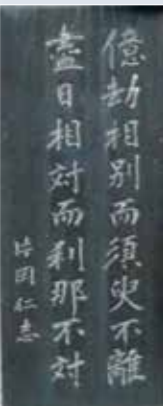 億劫相別而須臾不離
盡日相対而刹那不対
片岡仁志